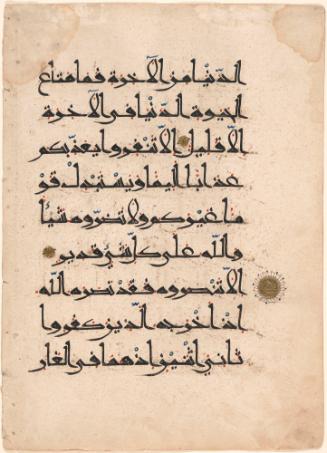 الدنيا من الآخرة فما متاع
الحيوة الدنيا في الآخرة
الا قليل الا تنفروا يعذبكم
عذابا اليما ويستبدل قو
ما غيركم ولا تضروه شيأ
والله على كل شئ قدير
الا تنصروه فقد نصره الله
اذ اخرجه الذين كفروا
ثاني اثنين اذ هما في الغار